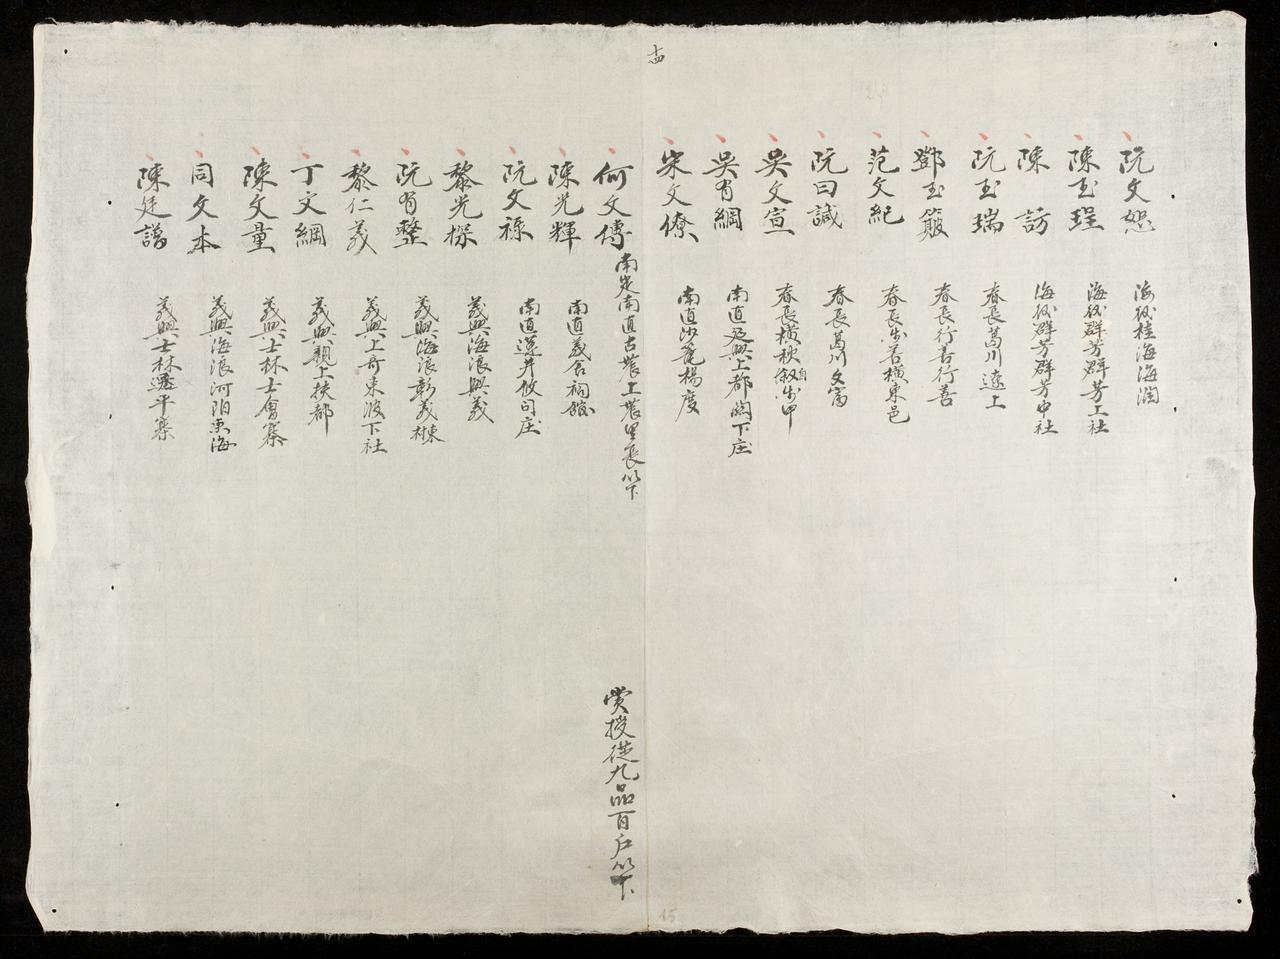 十四
阮文恕 海後桂海海澗
陳玉珵 海後群芳群芳上社
陳訪 海後群芳群芳中社
阮玉瑞 春長葛川遠上
鄧玉簸 春長行善行善
范文紀 春長步善橫東邑
阮曰諴 春長葛川文富
吳文宣 春長橫秋敘步甲
吳有綱 南直延興上都閣下庄
宋文僚 南直沙篭楊度
何文傳 南定南直古農上農里長以下 賞授從九品百戶以下
陳光輝 南直義舍祠
阮文祿 南直遵井攸司庄
黎光探 義興海浪興義
阮有整 義興海浪彰義棟
黎仁義 義興上奇東波下社
丁文綱 義興親上扶都
陳文量 義興士林士會寨
同文本 義興海浪河陌東海
陳廷 義興士林遷平寨
15